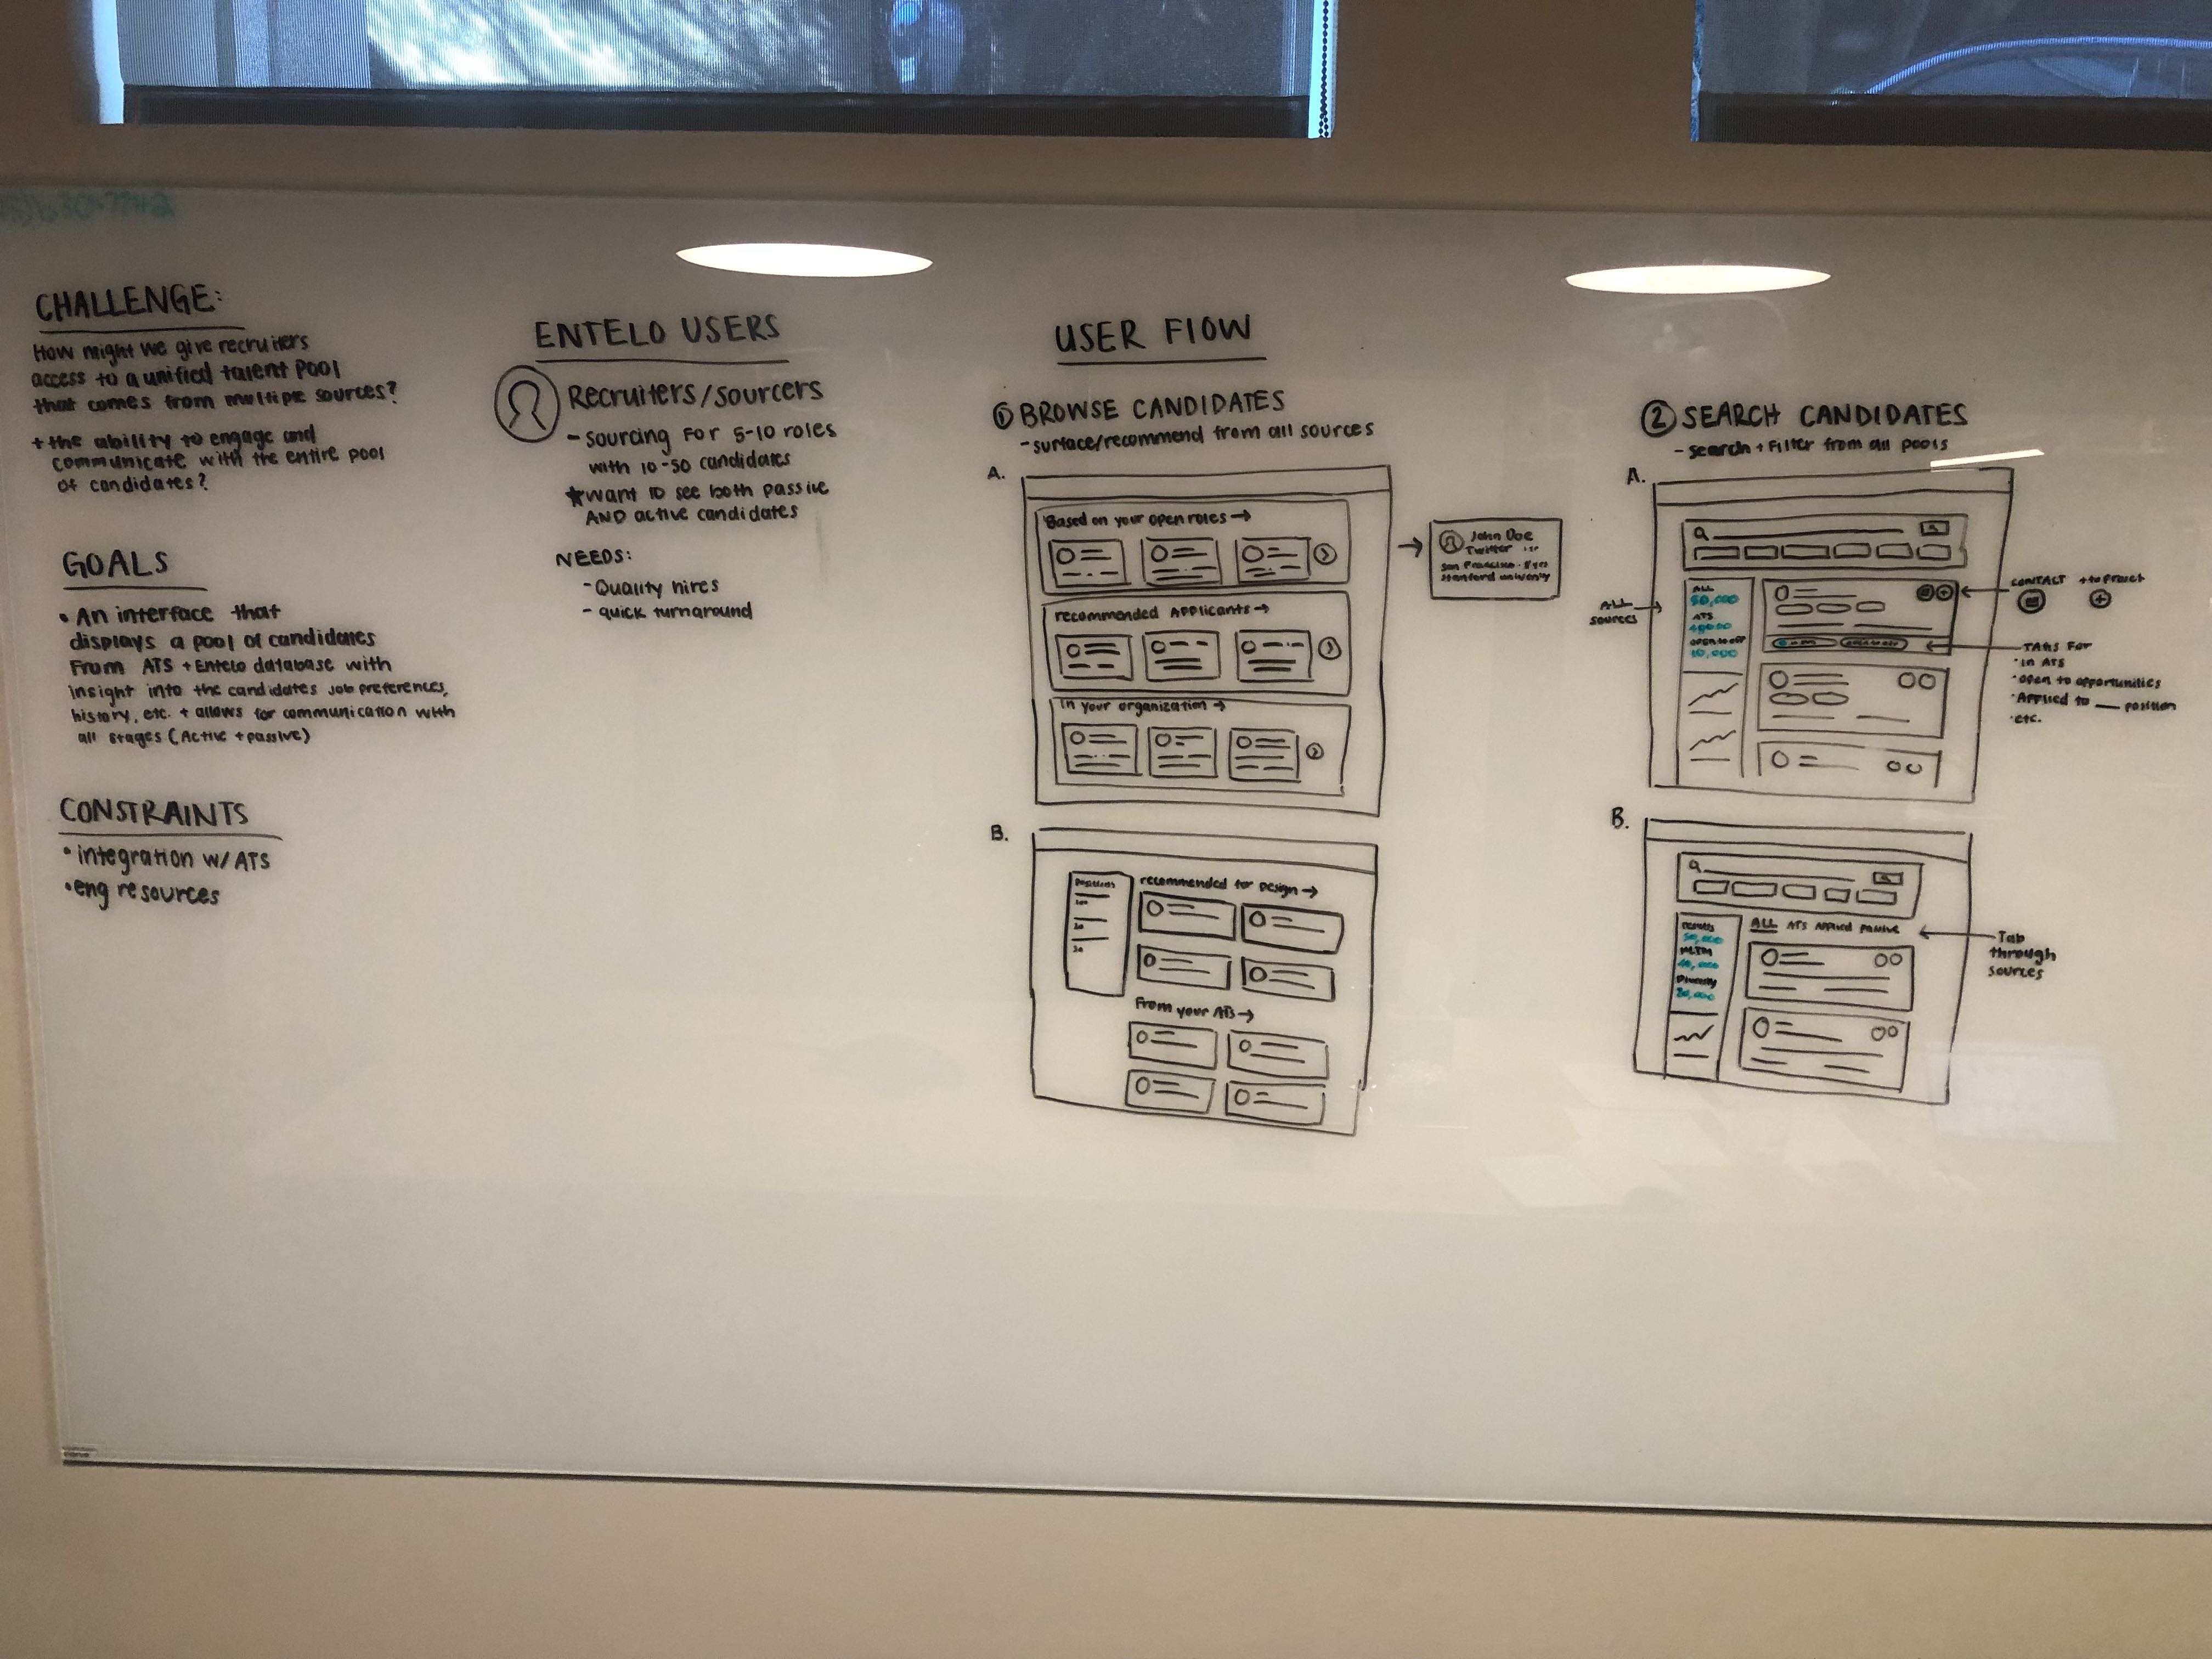 CHALLENGE:
How might we give recruiters
access to a unified talent pool
that comes from multiple sources?
+ the ability to engage and
communicate with the entire pool
of candidates?
GOALS
• An interface that
displays a pool of candidates
From ATS + Entelo database with
insight into the candidates job preferences,
history, etc. + allows for communication with
all stages (Active + passive)
CONSTRAINTS
• integration w/ ATS
• eng resources
ENTELO USERS
Recruiters/sourcers
- sourcing for 5-10 roles
with 10-50 candidates
★ want to see both passive
AND active candidates
NEEDS:
- Quality hires
- quick turnaround
USER FLOW
① BROWSE CANDIDATES
- surface/recommend from all sources
A.
Based on your open roles →
recommended Applicants →
In your organization →
John Doe
Twitter
San Francisco
Stanford University
B.
Positions
recommended for Design →
From your ATS →
② SEARCH CANDIDATES
- search + Filter from all pools
A.
ALL
sources
ALL
50,000
ATS
open to opp
10,000
CONTACT + to Project
TAGS FOR
• in ATS
• open to opportunities
• Applied to ___ position
• etc.
B.
results
50,000
Diversity
20,000
ALL ATS Applied Passive
Tab
through
sources